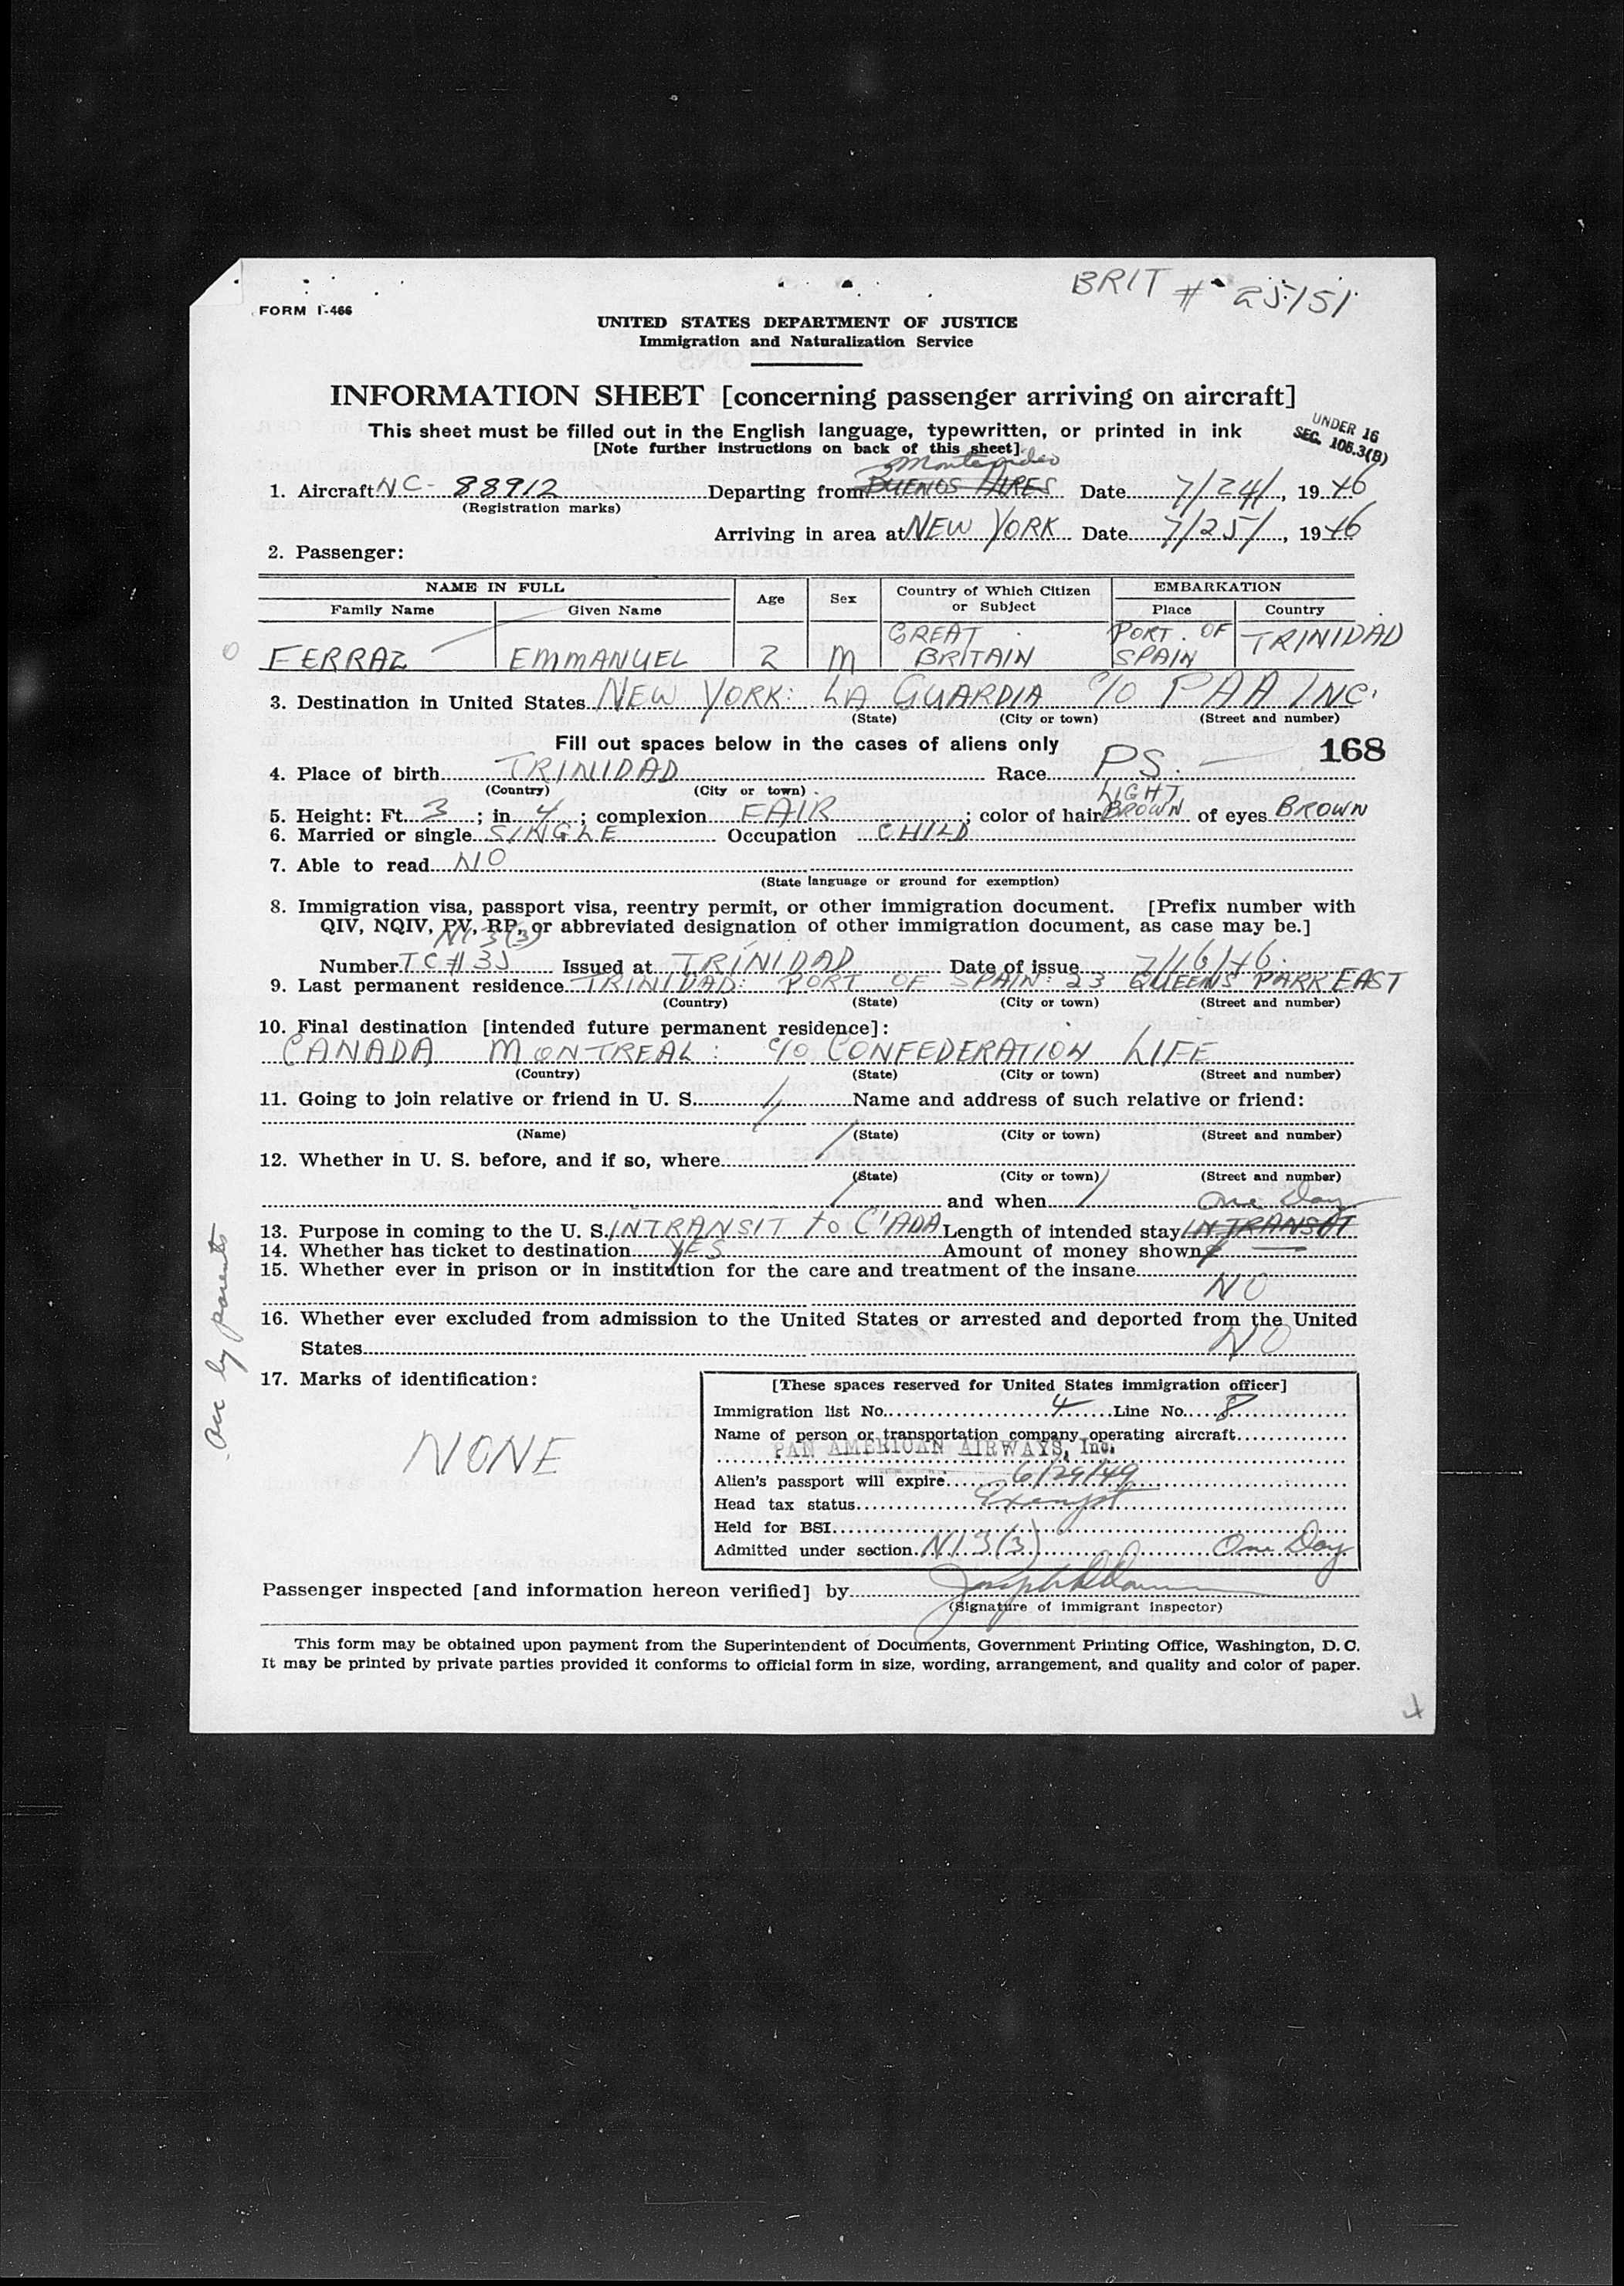 BRIT # 25151
FORM I-466
UNITED STATES DEPARTMENT OF JUSTICE
Immigration and Naturalization Service
INFORMATION SHEET [concerning passenger arriving on aircraft]
This sheet must be filled out in the English language, typewritten, or printed in ink
[Note further instructions on back of this sheet]
UNDER 16
SEC. 105.3(B)
Montevideo
1. Aircraft NC- 88912 Departing from BUENOS AIRES Date 7/24/, 1946
(Registration marks)
Arriving in area at NEW YORK Date 7/25/, 1946
2. Passenger:
NAME IN FULL Age Sex Country of Which Citizen or Subject EMBARKATION
Family Name Given Name Place Country
FERRAZ EMMANUEL 2 M GREAT BRITAIN PORT. OF SPAIN TRINIDAD
3. Destination in United States NEW YORK: LA GUARDIA C/O PAA INC.
(State) (City or town) (Street and number)
Fill out spaces below in the cases of aliens only 168
4. Place of birth TRINIDAD Race PS.
(Country) (City or town)
5. Height: Ft. 3; in. 4; complexion FAIR; color of hair LIGHT BROWN of eyes BROWN
6. Married or single SINGLE Occupation CHILD
7. Able to read NO
(State language or ground for exemption)
8. Immigration visa, passport visa, reentry permit, or other immigration document. [Prefix number with
QIV, NQIV, PV, RP, or abbreviated designation of other immigration document, as case may be.]
NI 3(3)
Number TC # 35 Issued at TRINIDAD Date of issue 7/16/46.
9. Last permanent residence TRINIDAD: PORT OF SPAIN: 23 QUEENS PARK EAST
(Country) (State) (City or town) (Street and number)
10. Final destination [intended future permanent residence]:
CANADA MONTREAL: C/O CONFEDERATION LIFE
(Country) (State) (City or town) (Street and number)
11. Going to join relative or friend in U. S. / Name and address of such relative or friend:
(Name) (State) (City or town) (Street and number)
12. Whether in U. S. before, and if so, where /
(State) (City or town) (Street and number)
/ and when / One Day
13. Purpose in coming to the U. S. INTRANSIT to C'ADA Length of intended stay IN TRANSIT
14. Whether has ticket to destination YES Amount of money shown
15. Whether ever in prison or in institution for the care and treatment of the insane
NO
16. Whether ever excluded from admission to the United States or arrested and deported from the United
States NO
17. Marks of identification:
NONE
by parents
[These spaces reserved for United States immigration officer]
Immigration list No. 4 Line No. 8
Name of person or transportation company operating aircraft
PAN AMERICAN AIRWAYS, Inc.
Alien's passport will expire 6/29/49
Head tax status Exempt
Held for BSI
Admitted under section NI 3(3) One Day
Passenger inspected [and information hereon verified] by
(Signature of immigrant inspector)
This form may be obtained upon payment from the Superintendent of Documents, Government Printing Office, Washington, D. C.
It may be printed by private parties provided it conforms to official form in size, wording, arrangement, and quality and color of paper.